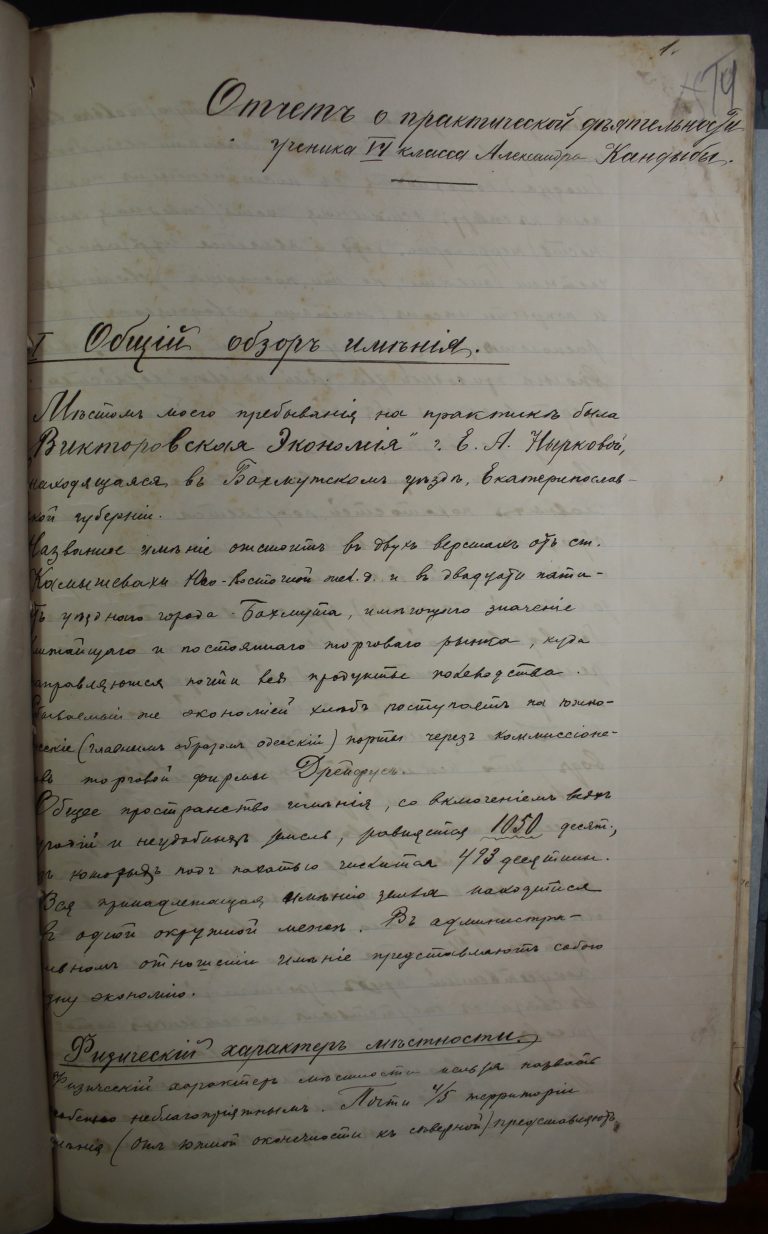 1.
Отчетъ о практической дѣятельности
ученика IV класса Александра Кандыбы.
I Общій обзоръ имѣнія.
Мѣстомъ моего пребыванія на практикѣ была
"Викторовская Экономія" г. Е. А. Нырковой,
находящаяся въ Бахмутскомъ уѣздѣ, Екатеринослав-
кой губерніи.
Названное имѣніе отстоитъ въ двухъ верстахъ отъ ст.
Камышеваха Юго-Восточной жел. д. и въ двадцати пяти-
ть уѣзднаго города - Бахмута, имѣющаго значеніе
лижайшаго и постояннаго торговаго рынка, куда
аправляются почти всѣ продукты полеводства.
бываемый же экономіей хлѣбъ поступаетъ на южно-
сскіе (главнымъ образомъ одесскій) порты черезъ коммиссіоне-
овъ торговой фирмы Дрейфусъ.
Общее пространство имѣнія, со включеніемъ всѣхъ
угодій и неудобныхъ земель, равняется 1050 десят.,
ъ которыхъ подъ пахатью числится 493 десятины.
Вся принадлежащая имѣнію земля находится
въ одной окружной межѣ. Въ администра-
ивномъ отношеніи имѣніе представляютъ собою
дну экономію.
Физическій характеръ мѣстности.
Физическій характеръ мѣстности нельзя назвать
собенно неблагопріятнымъ. Почти 4/5 территоріи
мѣнія (отъ южной оконечности къ сѣверной) представляютъ